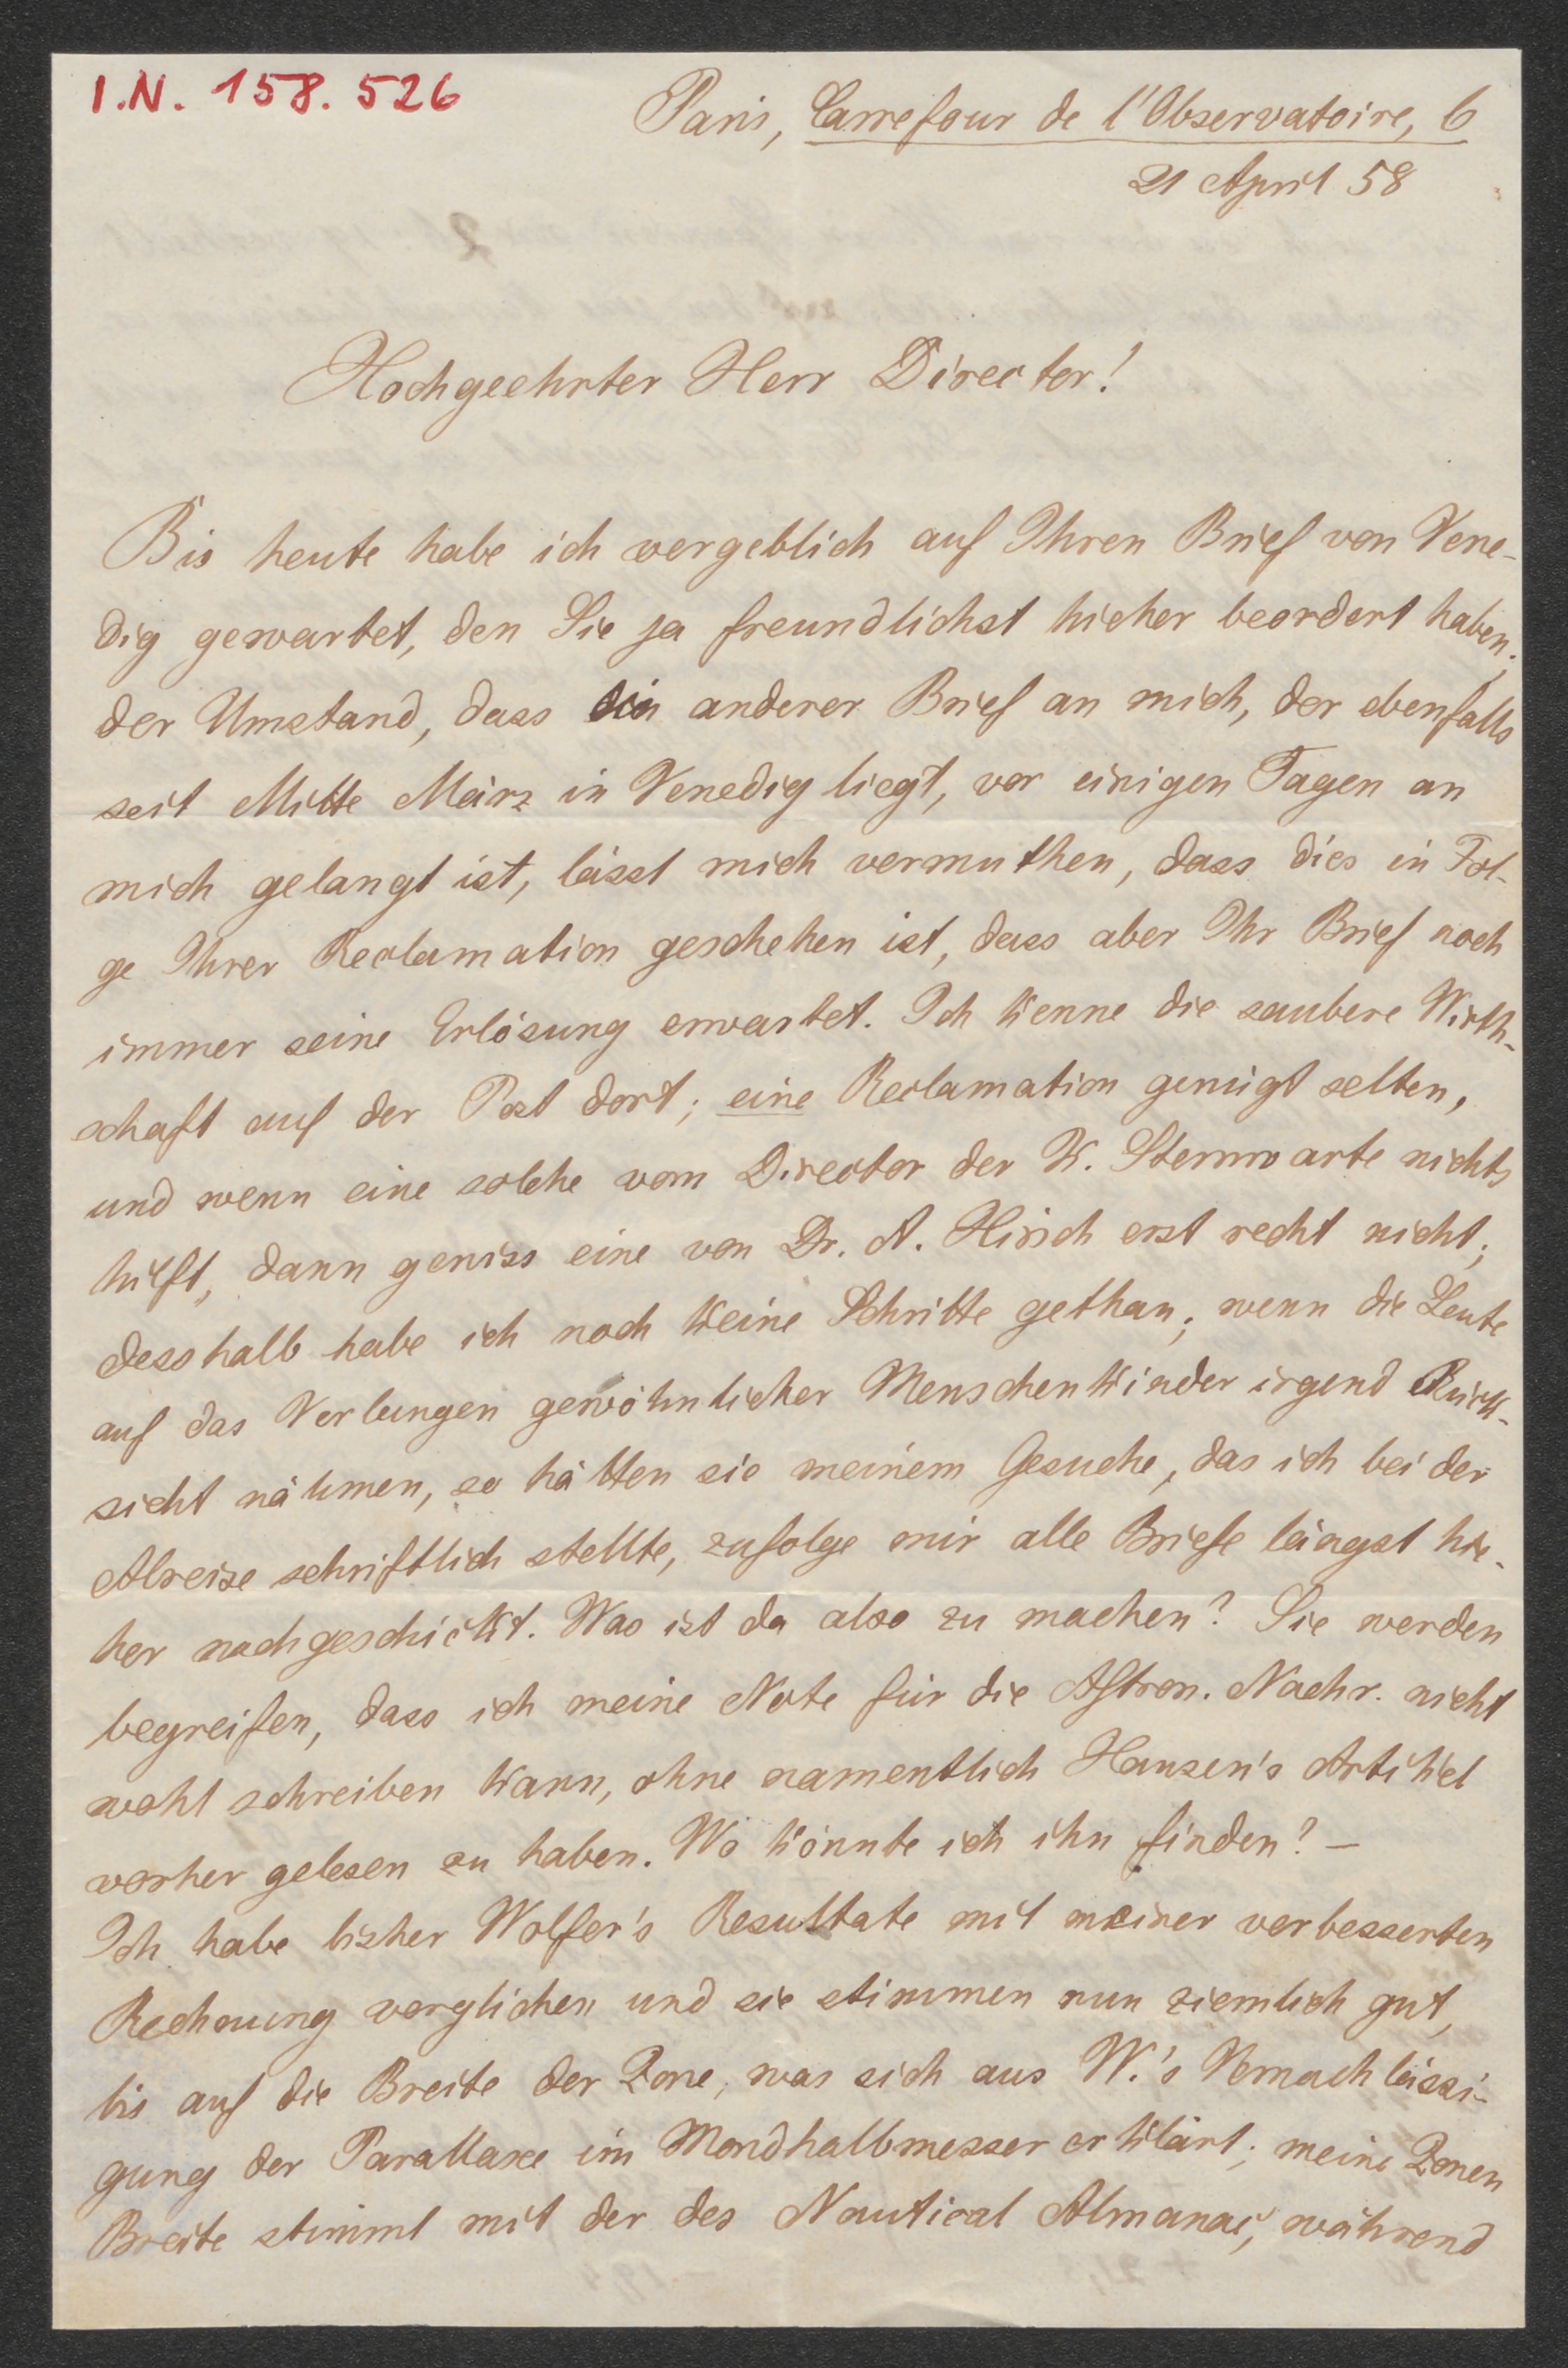 I.N. 158.526
Paris, Carrefour de l'Observatoire, 6
21 April 58
Hochgeehrter Herr Director!
Bis heute habe ich vergeblich auf Ihren Brief von Vene-
dig gewartet, den Sie ja freundlichst hieher beordert haben;
der Umstand, dass ein anderer Brief an mich, der ebenfalls
seit Mitte März in Venedig liegt, vor einigen Tagen an
mich gelangt ist, lässt mich vermuthen, dass dies in Fol-
ge Ihrer Reclamation geschehen ist, dass aber Ihr Brief noch
immer seine Erlösung erwartet. Ich kenne die saubere Wirth-
schaft auf der Post dort; eine Reclamation genügt selten,
und wenn eine solche vom Director der K. Sternwarte nichts
hilft, dann gewiss eine von Dr. A. Hirsch erst recht nicht;
desshalb habe ich noch keine Schritte gethan; wenn die Leute
auf das Verlangen gewöhnlicher Menschenkinder irgend Rück-
sicht nähmen, so hätten sie meinem Gesuche, das ich bei der
Abreise schriftlich stellte, zufolge mir alle Briefe längst hie-
her nachgeschickt. Was ist da also zu machen? Sie werden
begreifen, dass ich meine Note für die Astron. Nachr. nicht
wohl schreiben kann, ohne namentlich Hansen's Artikel
vorher gelesen zu haben. Wo könnte ich ihn finden? —
Ich habe bisher Wolfer's Resultate mit meiner verbesserten
Rechnung verglichen und sie stimmen nun ziemlich gut,
bis auf die Breite der Zone, was sich aus W.'s Vernachlässi-
gung der Parallaxe im Mondhalbmesser erklärt; meine Zonen
Breite stimmt mit der des Nautical Almanac, während